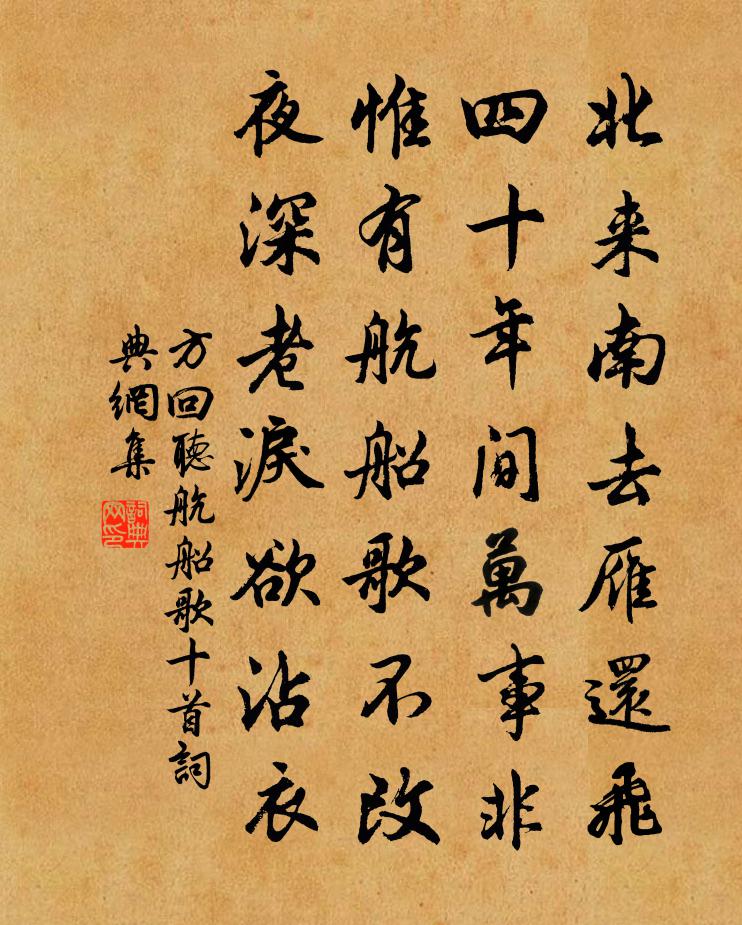 北来南去雁還飛
四十年間萬事非
惟有航船歌不改
夜深老淚欲沾衣
方回聽航船歌十首詞
典網集
詞典网印